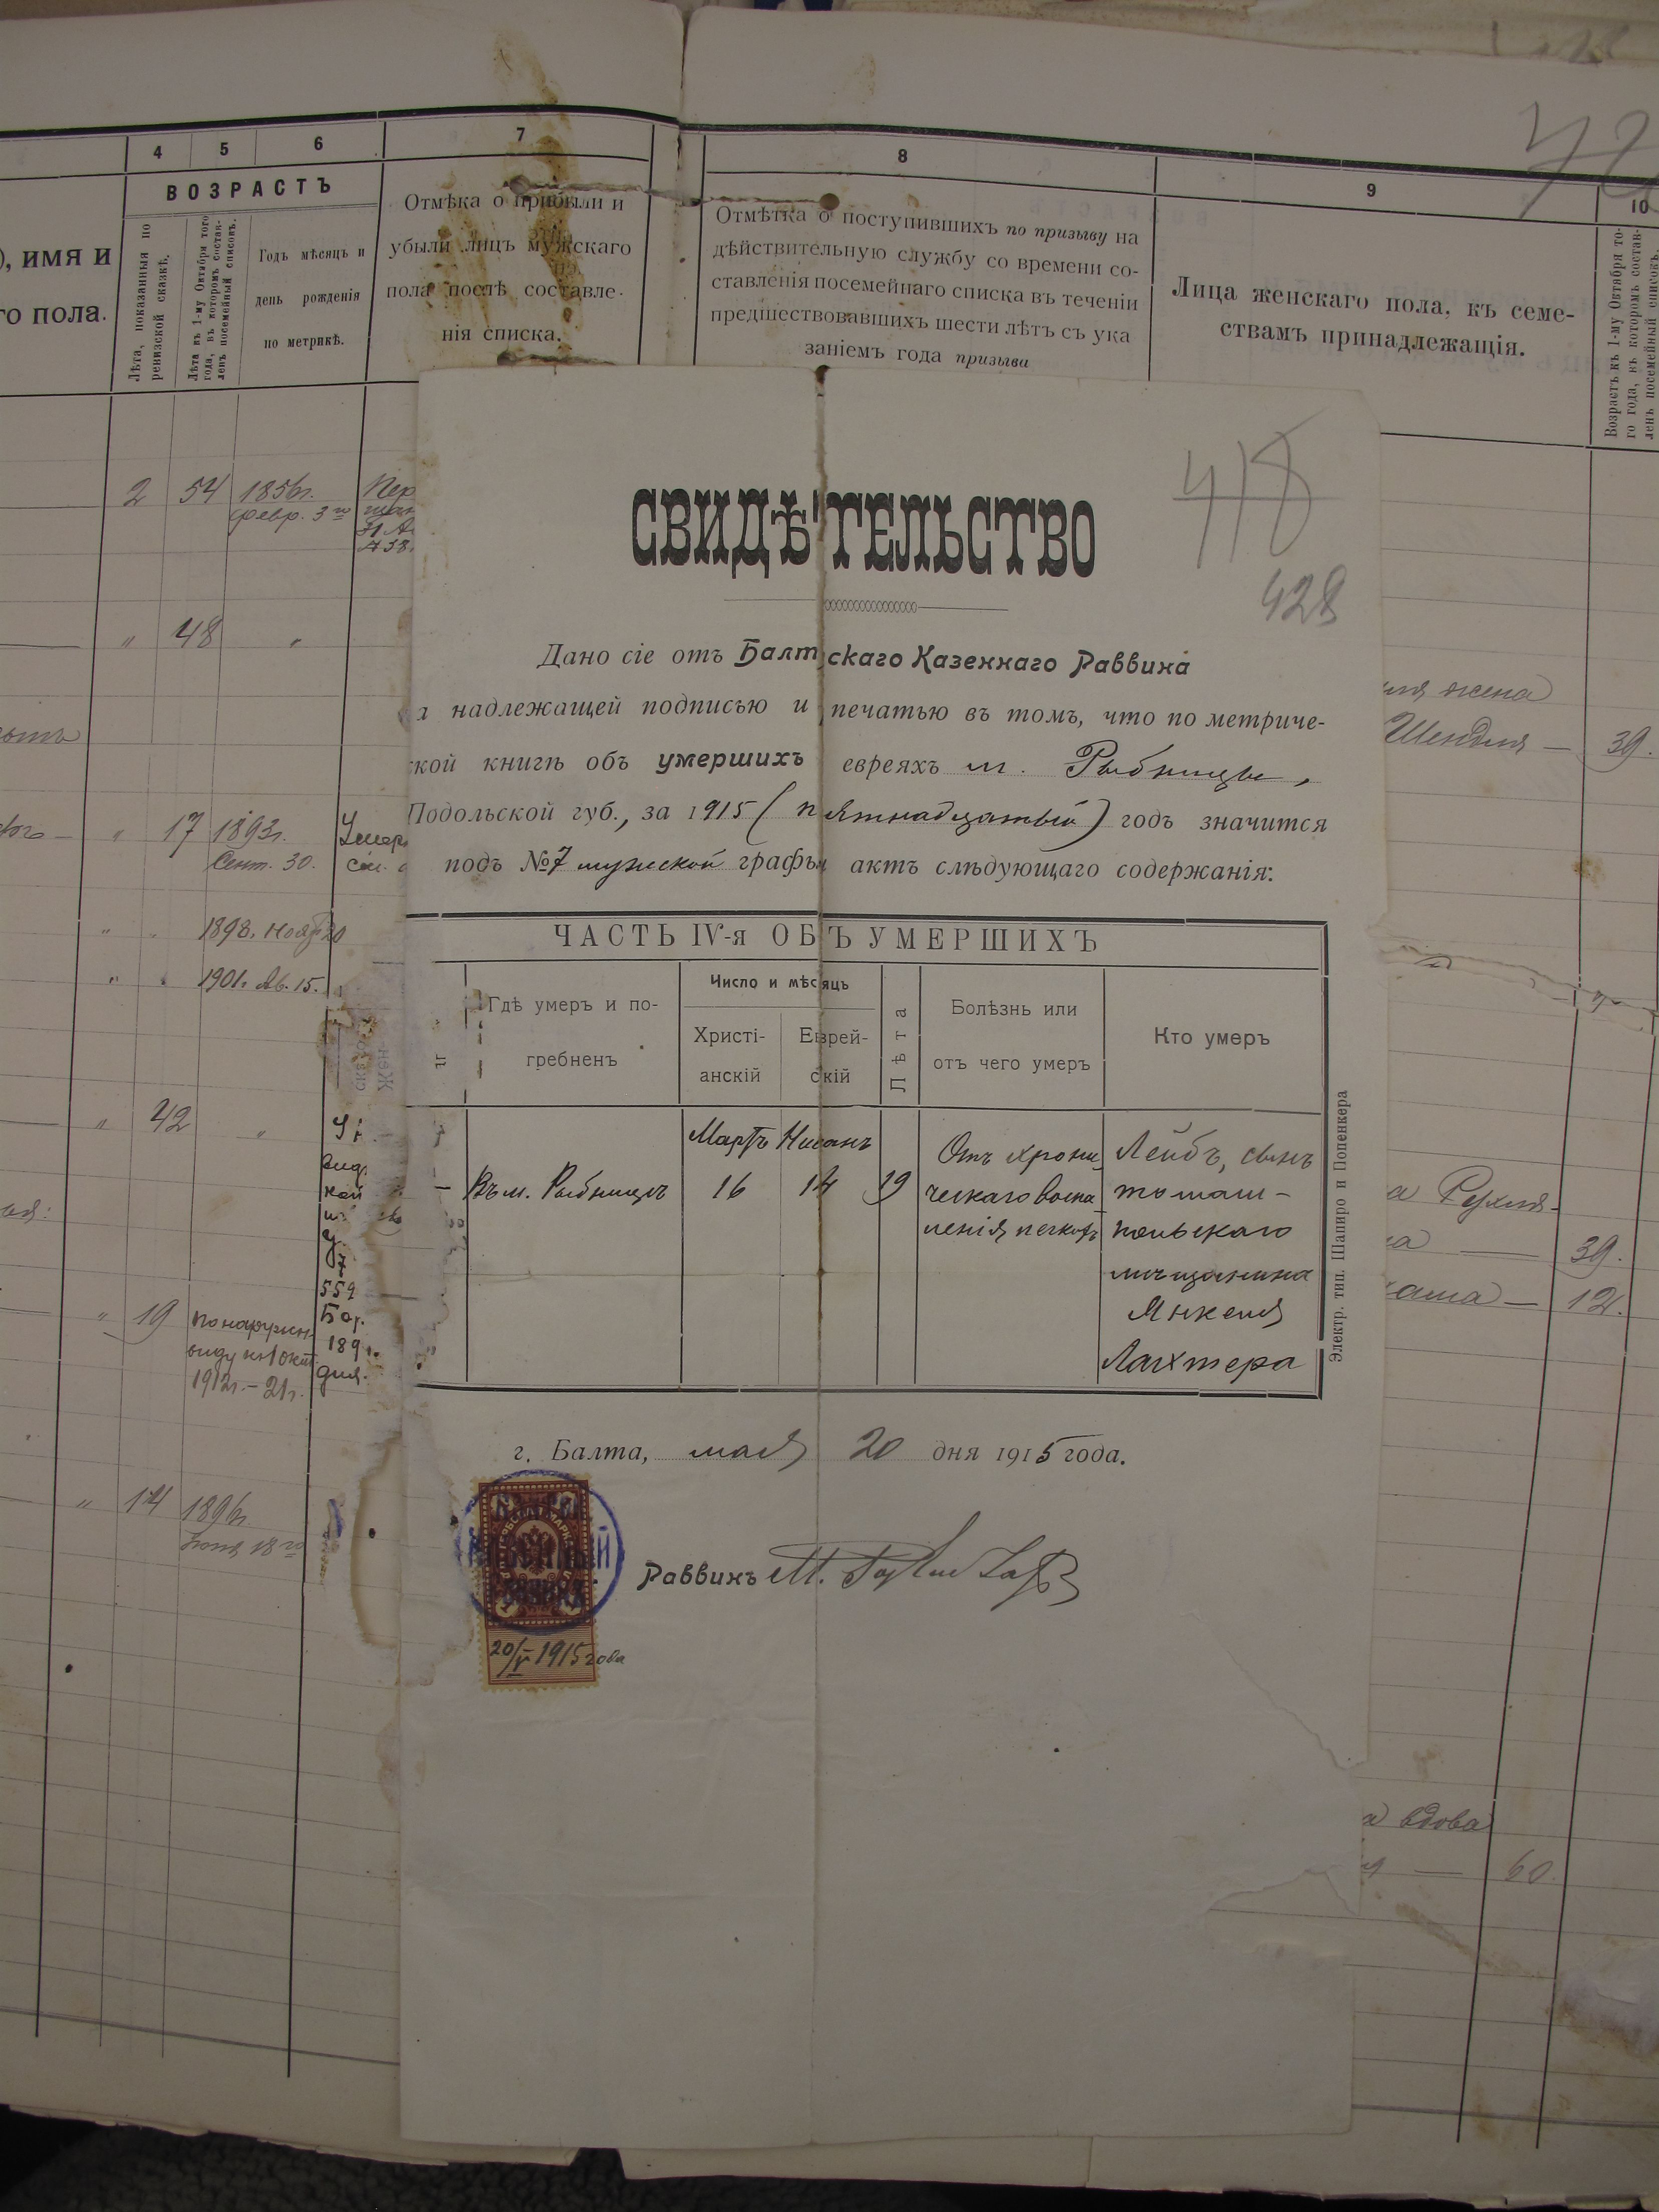 4 5 6 7
ВОЗРАСТЪ
, имя и
го пола.
Лѣта, показанныя по
ревизской сказкѣ.
Лѣта къ 1-му Октября того
года, въ которомъ состав-
ленъ посемейный списокъ.
Годъ мѣсяцъ и
день рожденія
по метрикѣ.
Отмѣка о прибыли и
убыли лицъ мужскаго
пола послѣ составле-
нія списка.
8 9 10
Отмѣтка о поступившихъ по призыву на
дѣйствительную службу со времени со-
ставленія посемейнаго списка въ теченіи
предшествовавшихъ шести лѣтъ съ ука
заніемъ года призыва
Лица женскаго пола, къ семе-
ствамъ принадлежащія.
Возрастъ къ 1-му Октября то-
го года, въ которомъ состав-
ленъ посемейный списокъ.
2 54 1856г.
февр. 3го
" 48 "
" 17 1893г.
Сент. 30.
" " 1898. Нояб 20
" " 1901. Ав. 15.
" 42 "
" 19 по наружн.
виду къ 1 окт.
1912г. - 21г.
559
Бор.
189
дня.
" 14 1896г.
Іюня 18го
жена
Шендля — 39.
а Рухля-
39.
— 12.
вдова
— 60.
СВИДѢТЕЛЬСТВО
418
428
Дано сіе отъ Балтскаго Казеннаго Раввина
а надлежащей подписью и печатью въ томъ, что по метриче-
ской книгѣ объ умершихъ евреяхъ м. Рыбницы,
Подольской губ., за 1915 (пятнадцатый) годъ значится
подъ №7 мужской графы актъ слѣдующаго содержанія:
ЧАСТЬ IV-я ОБЪ УМЕРШИХЪ
Гдѣ умеръ и по-
гребненъ
Число и мѣсяцъ
Христі-
анскій
Еврей-
скій
Лѣта
Болѣзнь или
отъ чего умеръ
Кто умеръ
— Въ м. Рыбницѣ
Мартъ
16
Нисанъ
14
19
Отъ хрони
ческаго воспа
ленія легкихъ
Лейбъ, сынъ
томаш-
польскаго
мѣщанина
Янкеля
Лахтера
Электр. тип. Шапиро и Попенкера
г. Балта, мая 20 дня 1915 года.
Раввинъ М.
20/V 1915 года